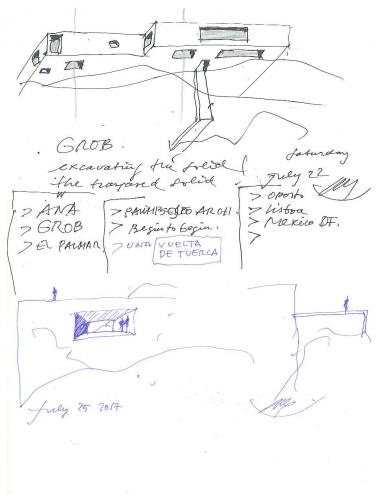 GROB.
excavating the solid /
the trayared solid
Saturday
July 22
> ANA
> GROB
> EL PALMAR
> ARCHI.
> Begin to begin.
> UNA VUELTA
DE TUERCA
> oporto
> Lisboa
> Mexico DF.
>
July 25 2017